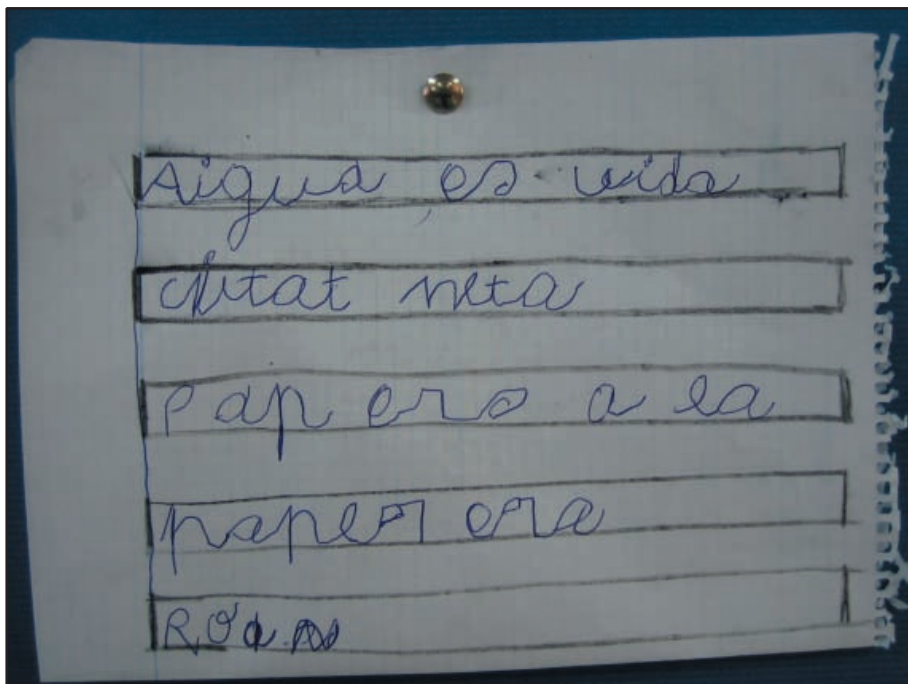 Aigua es vida
ciutat neta
papers a la
paperera